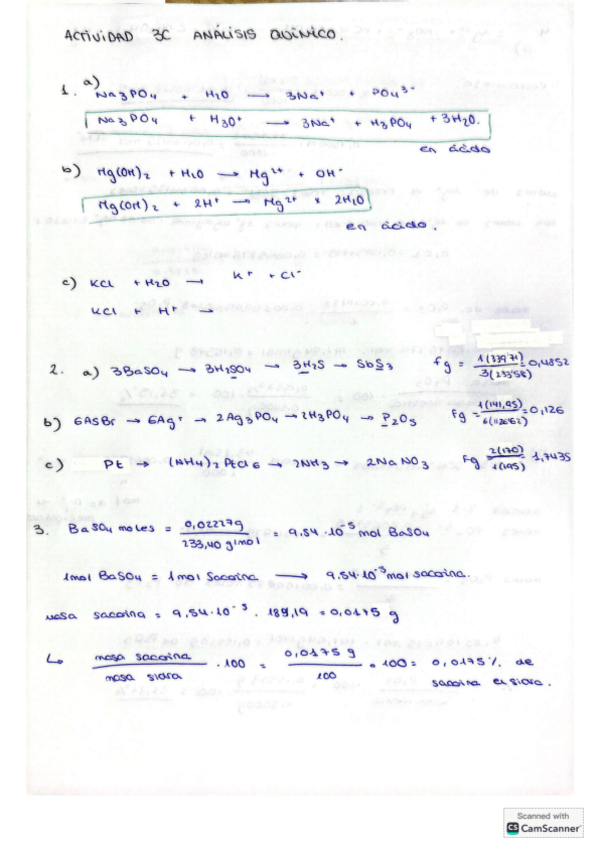 ACTIVIDAD 3C ANÁLISIS QUÍMICO.
1. a) Na3PO4 + H2O → 3Na+ + PO4 3-
Na3PO4 + H3O+ → 3Na+ + H3PO4 + 3H2O.
en ácido
b) Mg(OH)2 + H2O → Mg2+ + OH-
Mg(OH)2 + 2H+ → Mg2+ + 2H2O
en ácido.
c) KCl + H2O → K+ + Cl-
KCl + H+ →
2. a) 3BaSO4 → 3H2SO4 → 3H2S → SbS3 fg = 1(339'71)/3(233'58) = 0,4852
b) 6AgBr → 6Ag+ → 2Ag3PO4 → 2H3PO4 → P2O5 Fg = 1(141,95)/ = 0,126
c) Pt → (NH4)2PtCl6 → 2NH3 → 2NaNO3 Fg = 2(170)/1(195) = 1,7435
3. BaSO4 moles = 0,02227g/233,40 g/mol = 9,54·10-5 mol BaSO4
1mol BaSO4 = 1mol Sacarina → 9,54·10-5 mol sacarina.
Masa sacarina = 9,54·10-5 · 183,19 = 0,0175 g
↳ masa sacarina/masa sidra · 100 = 0,0175 g/100 · 100 = 0,0175 % de
sacarina en sidra.
Scanned with
CS CamScanner